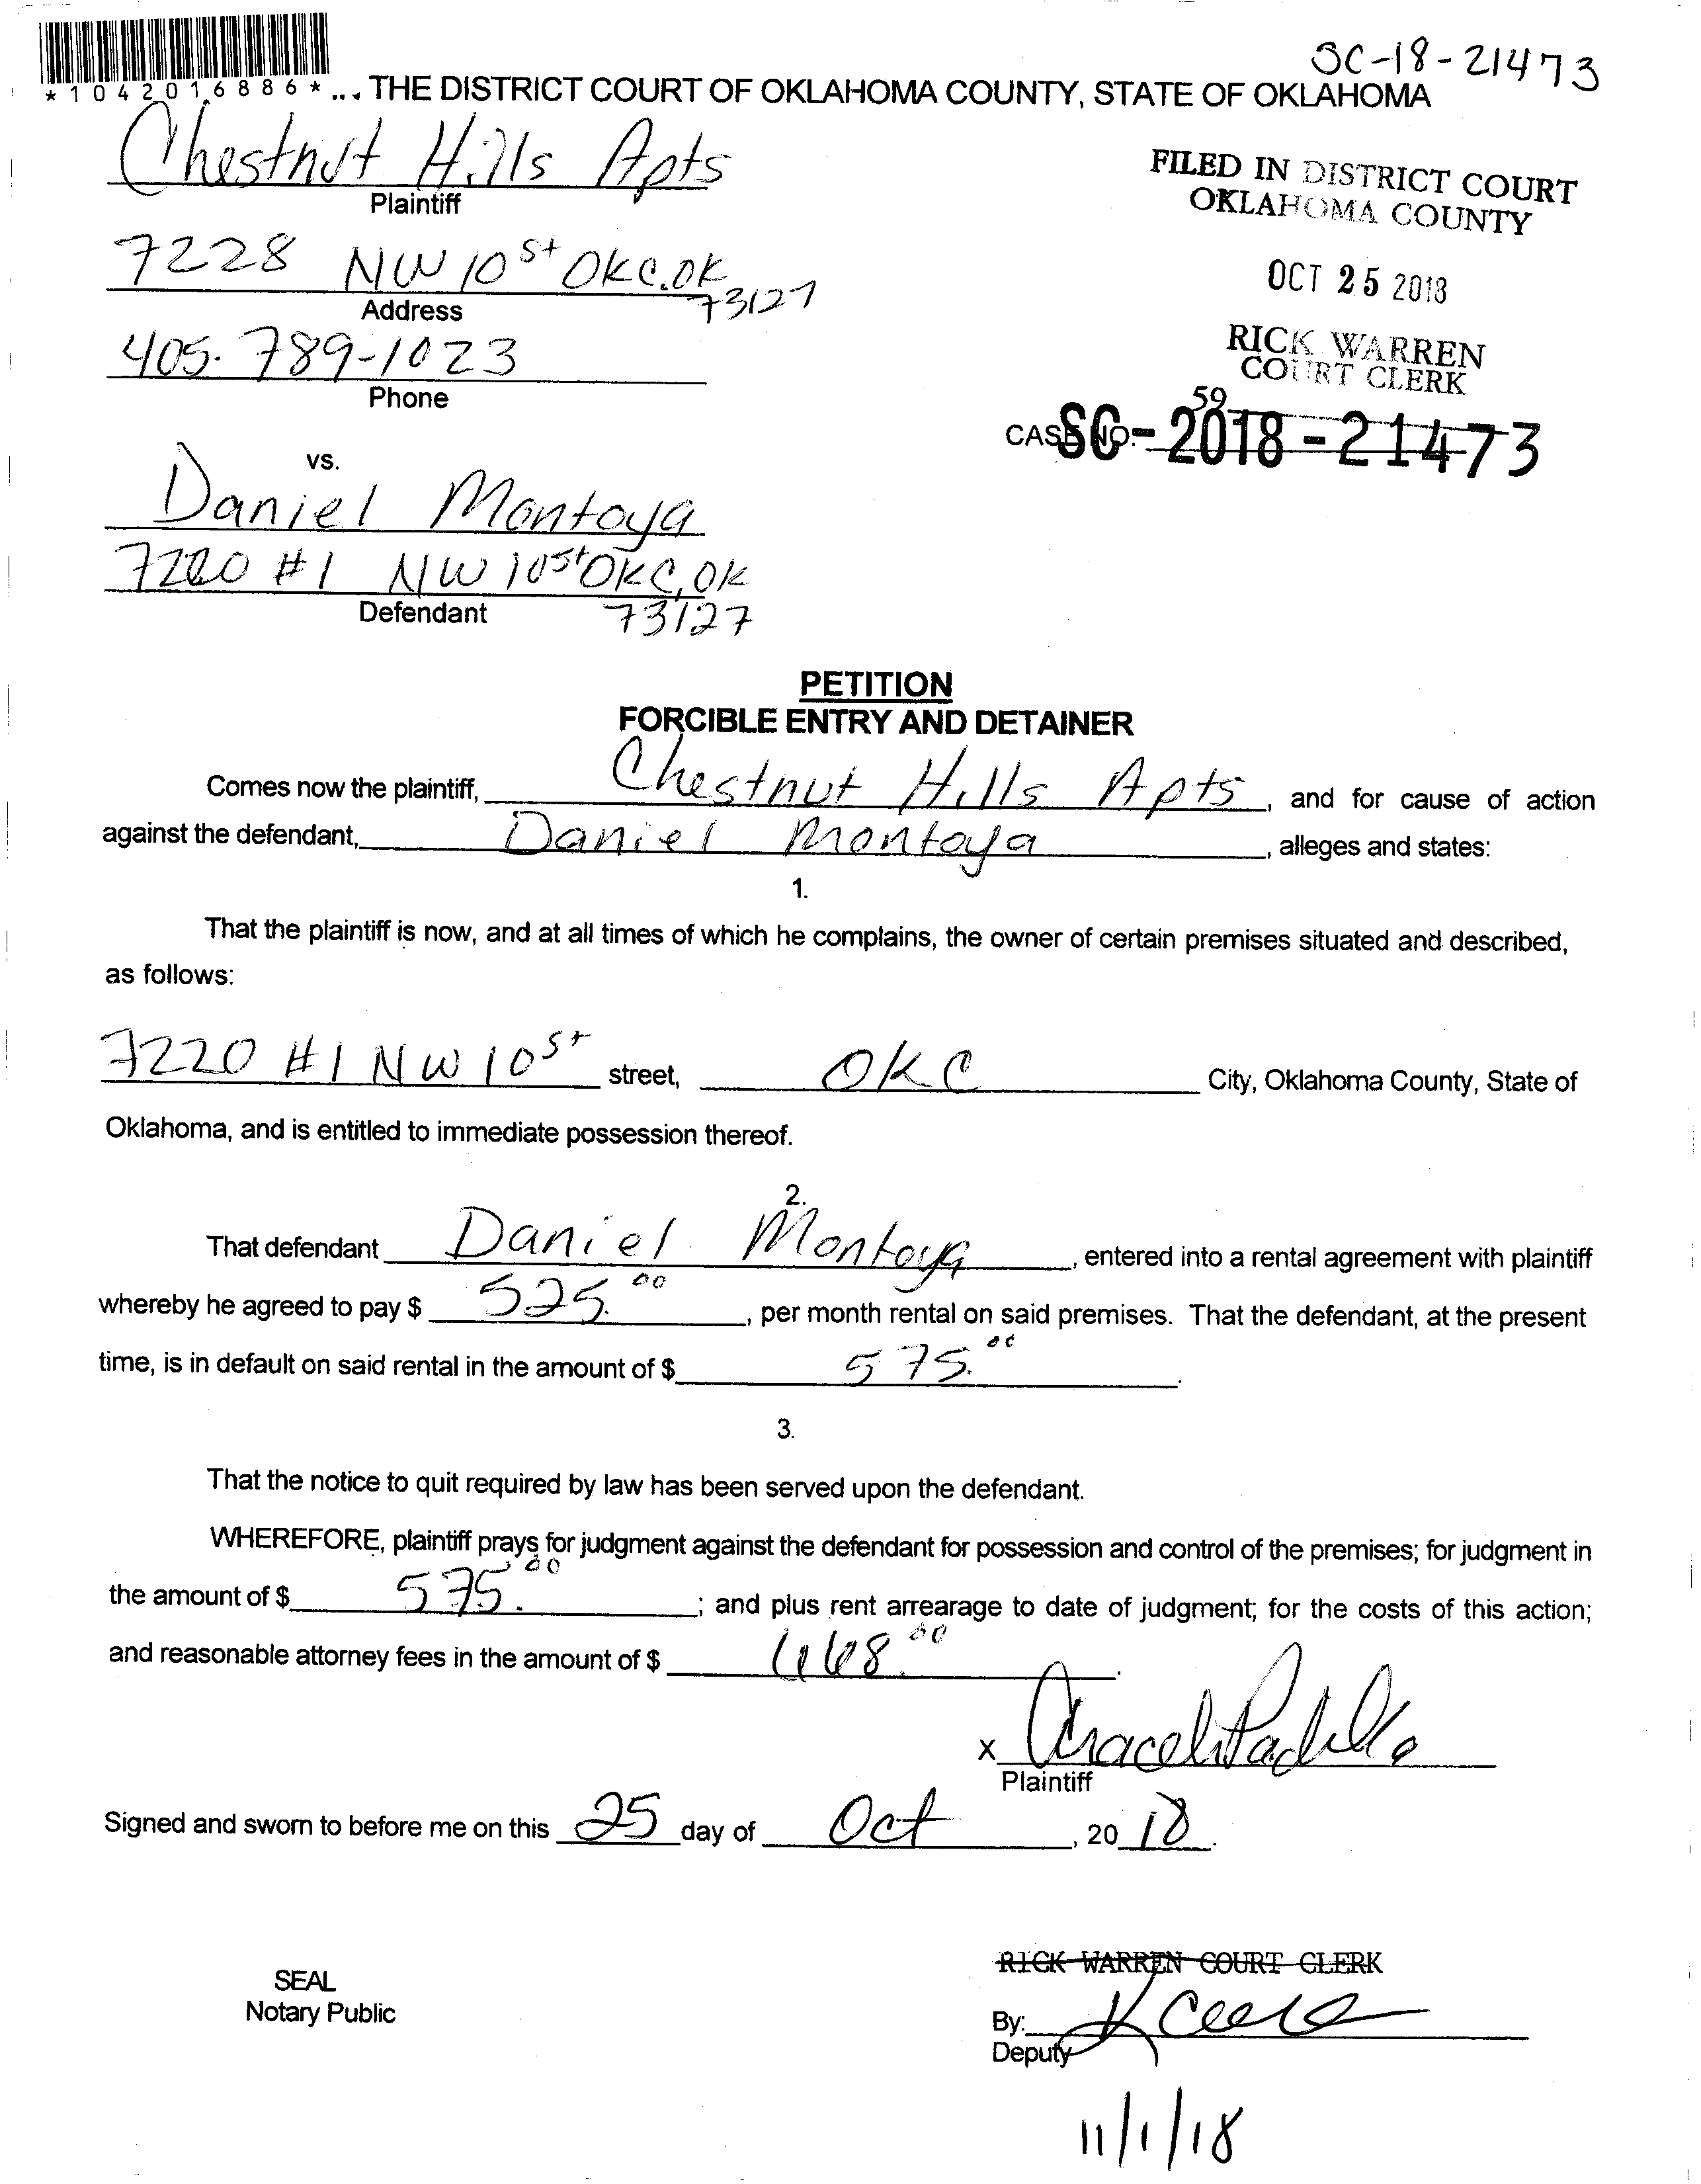 SC-18-21473
*1042016886* ... THE DISTRICT COURT OF OKLAHOMA COUNTY, STATE OF OKLAHOMA
Chestnut Hills Apts
Plaintiff
FILED IN DISTRICT COURT
OKLAHOMA COUNTY
7228 NW 10 St OKC.OK
73127
Address
OCT 25 2018
405-789-1023
Phone
RICK WARREN
COURT CLERK
59
CASE NO. SC-2018-21473
vs.
Daniel Montoya
7220 #1 NW 10 St OKC, OK
73127
Defendant
PETITION
FORCIBLE ENTRY AND DETAINER
Comes now the plaintiff, Chestnut Hills Apts, and for cause of action
against the defendant, Daniel Montoya, alleges and states:
1.
That the plaintiff is now, and at all times of which he complains, the owner of certain premises situated and described,
as follows:
7220 #1 NW 10 St street, OKC City, Oklahoma County, State of
Oklahoma, and is entitled to immediate possession thereof.
2.
That defendant Daniel Montoya, entered into a rental agreement with plaintiff
whereby he agreed to pay $ 525.00, per month rental on said premises. That the defendant, at the present
time, is in default on said rental in the amount of $ 575.00.
3.
That the notice to quit required by law has been served upon the defendant.
WHEREFORE, plaintiff prays for judgment against the defendant for possession and control of the premises; for judgment in
the amount of $ 575.00; and plus rent arrearage to date of judgment; for the costs of this action;
and reasonable attorney fees in the amount of $
x Araceli Padilla
Plaintiff
Signed and sworn to before me on this 25 day of Oct, 20 18.
RICK WARREN COURT CLERK
SEAL
Notary Public
By:
Deputy
11/1/18